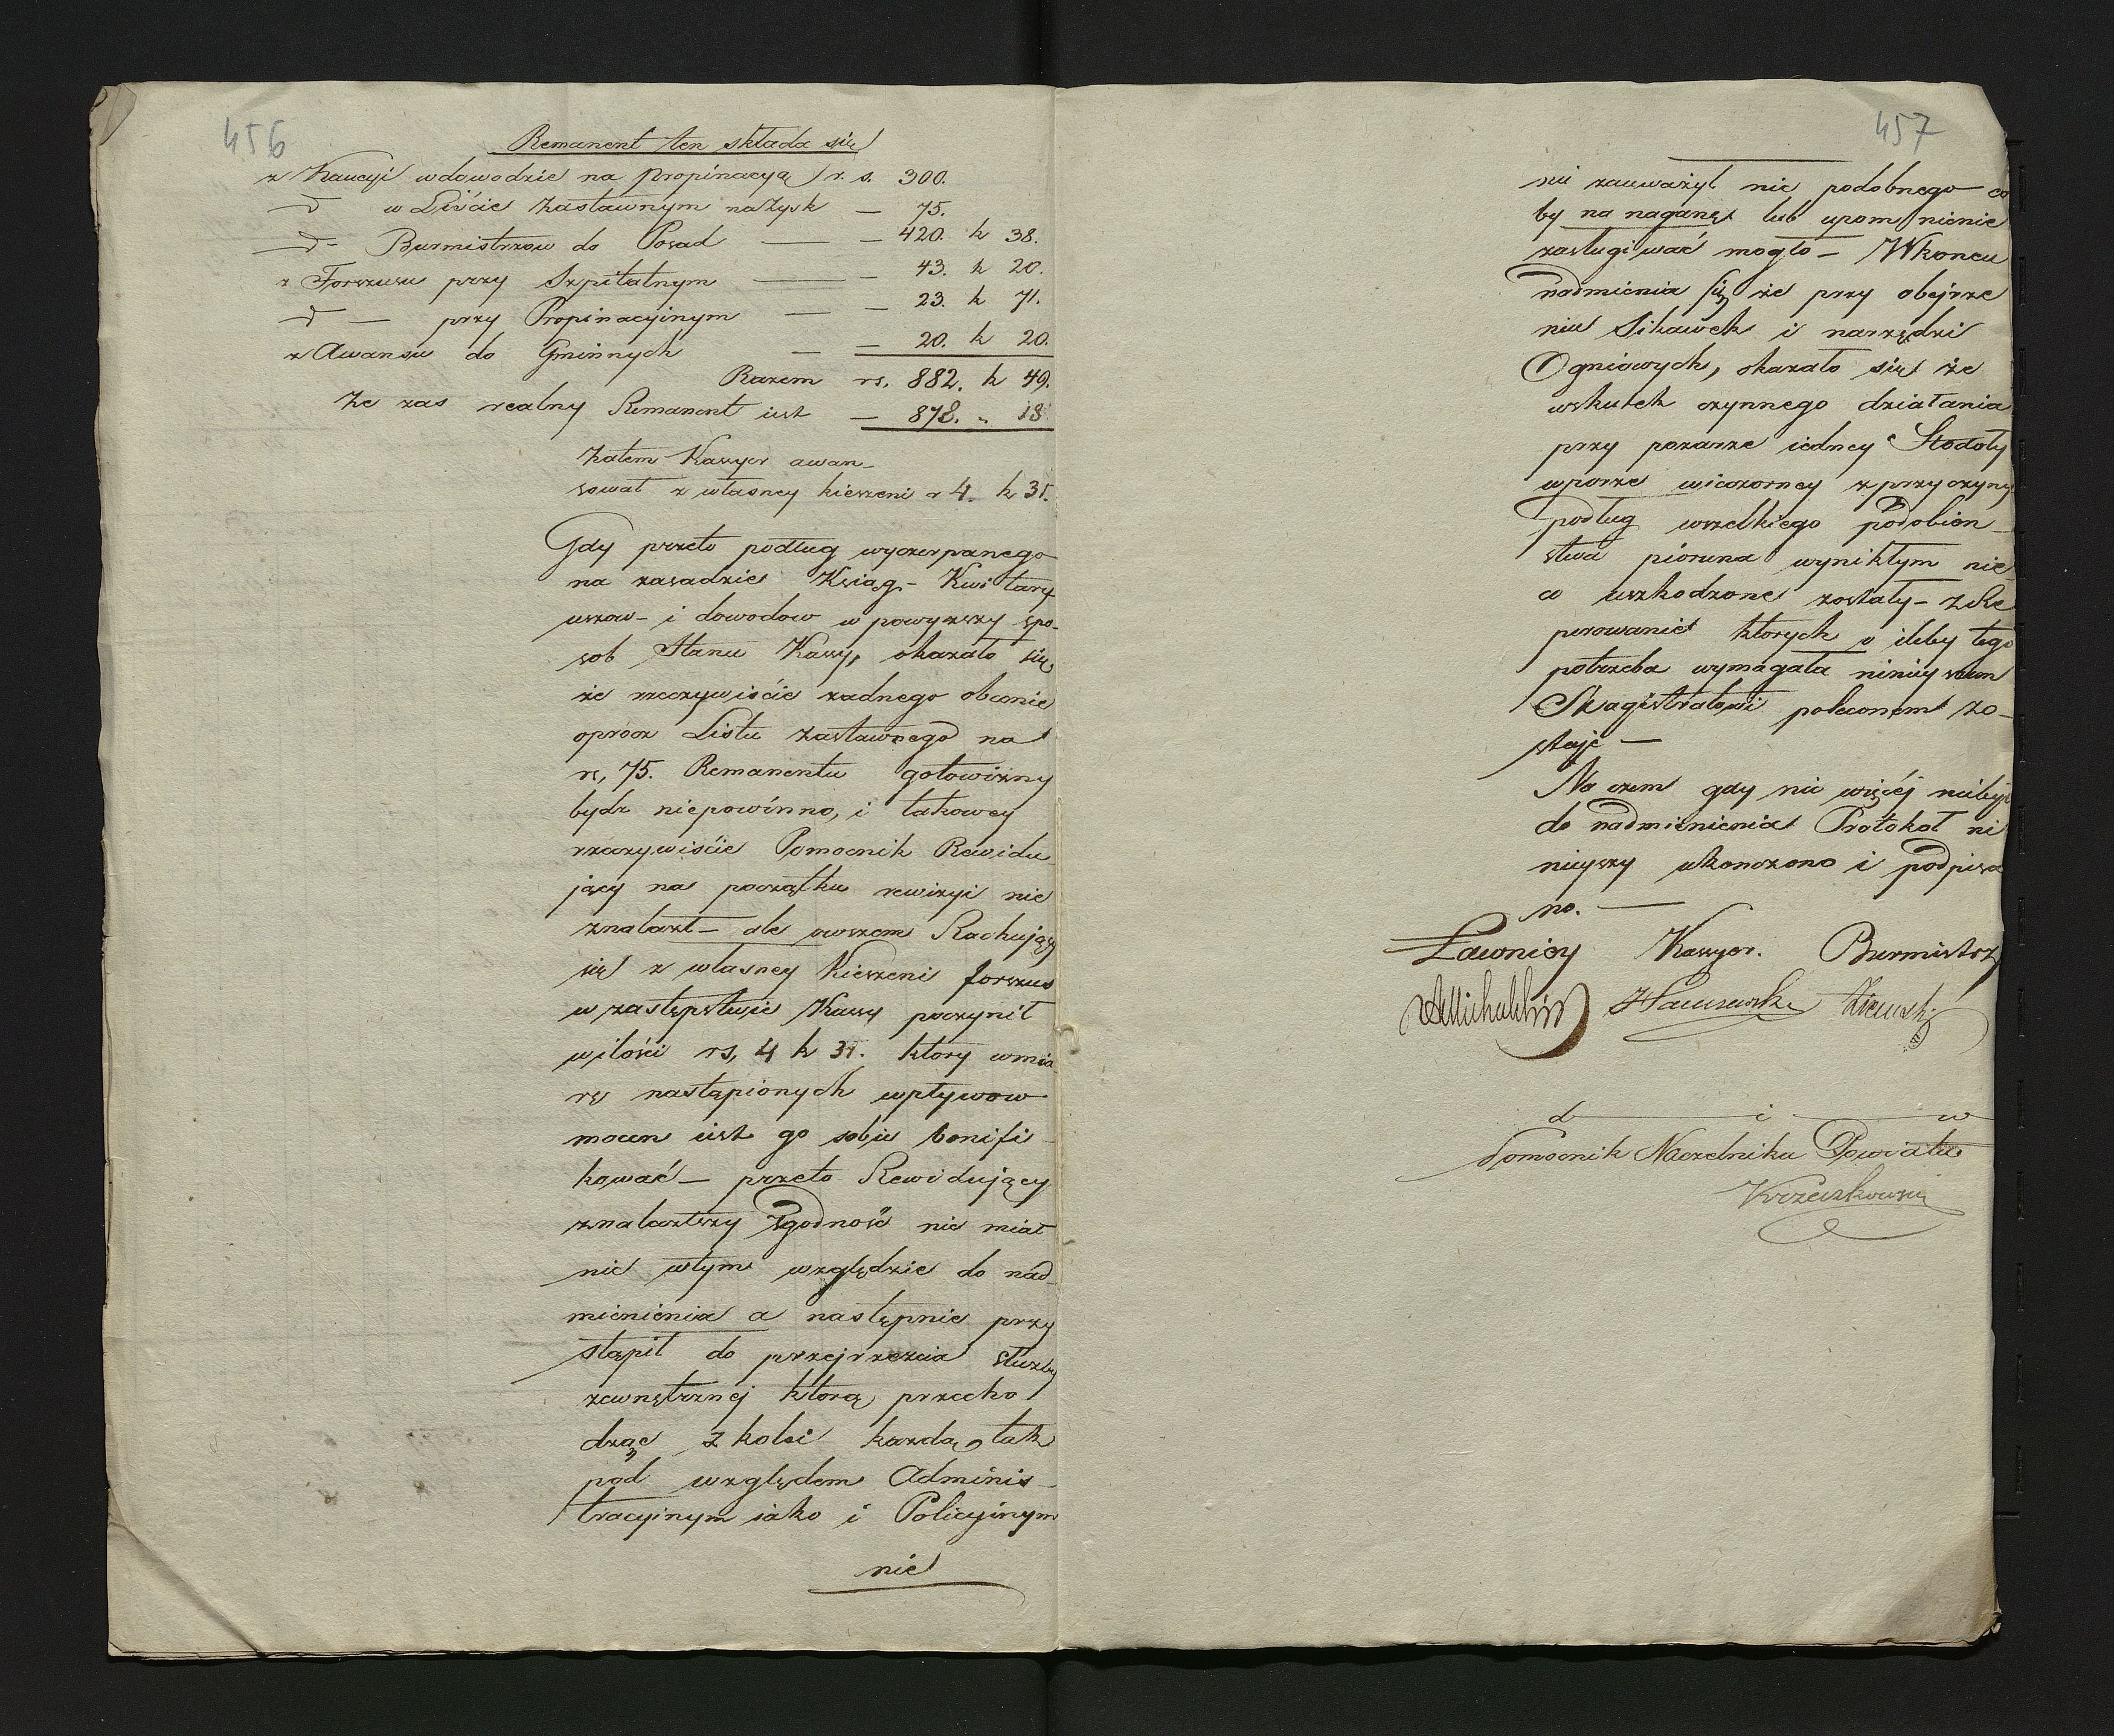 456
Remanent ten składa się
z Kaucyi w dowodzie na Propinacyą r. s. 300.
d w Liście Zastawnym na Zysk — 75.
— d — Burmistrzow do Posad — — 420. k 38.
z Forszusu przy Szpitalnym — — 43. k 20.
— d — przy Propinacyinym — — 23. k 71.
z Awansu do Gminnych — — 20. k 20.
Razem rs. 882. k 49.
Ze zas realny Remanent iest — 878. „ 18
Zatem Kassyer awan-
sował z własney kieszeni r 4. k 31.
Gdy przeto podług wyczerpanego
na zasadzie Ksiag - Kwitary
uszow - i dowodow w powyzszy spo-
sob Stanu Kassy, okazało się
że rzeczywiście zadnego obecnie
oprocz Listu Zastawnego na
rs, 75. Remanentu gotowizny
bydz niepowinno, i takowey
rzeczywiście Pomocnik Rewidu
jący na początku rewizyi nie
znalazł - ale owszem Rachujący
się z własney Kieszeni forszus
w zastępstwie Kassy poczynił
w ilości rs, 4 k 31. ktory w mia
rę nastąpionych wpływow
mocen iest go sobie bonifi-
kować - przeto Rewidujący
znalazłszy Zgodność nie miał
nic w tym względzie do nad-
mienienia a następnie przy
stąpił do przejrzenia służby
zewnętrznej ktorą przecho
dząc z kolei kazdą, tak
pod względem Adminis-
tracyinym iako i Policyinym
nie
457
nie zauważył nic podobnego co
by na naganę lub upomnienie
zasługiwać mogło - W koncu
nadmienia się że przy obejrze
niu Sikawek i narzędzi
Ogniowych, okazało się że
wskutek czynnego działania
przy pozarze iedney Stodoły
w porze wieczorney z przyczyny
podług wszelkiego podobien-
stwa pioruna wynikłym nie
co uszkodzone zostały - zRe
perowanie ktorych o ileby tego
potrzeba wymagała niniejszem
Magistratowi poleconem zo-
staje —
Na czem gdy nic więcéj niebyło
do nadmienienia Protokoł ni
nieyszy ukonczono i podpisa
no. —
Ławnicy Kassyer. Burmistrz
AMichalski
d — i — w
Pomocnik Naczelnika Powiatu